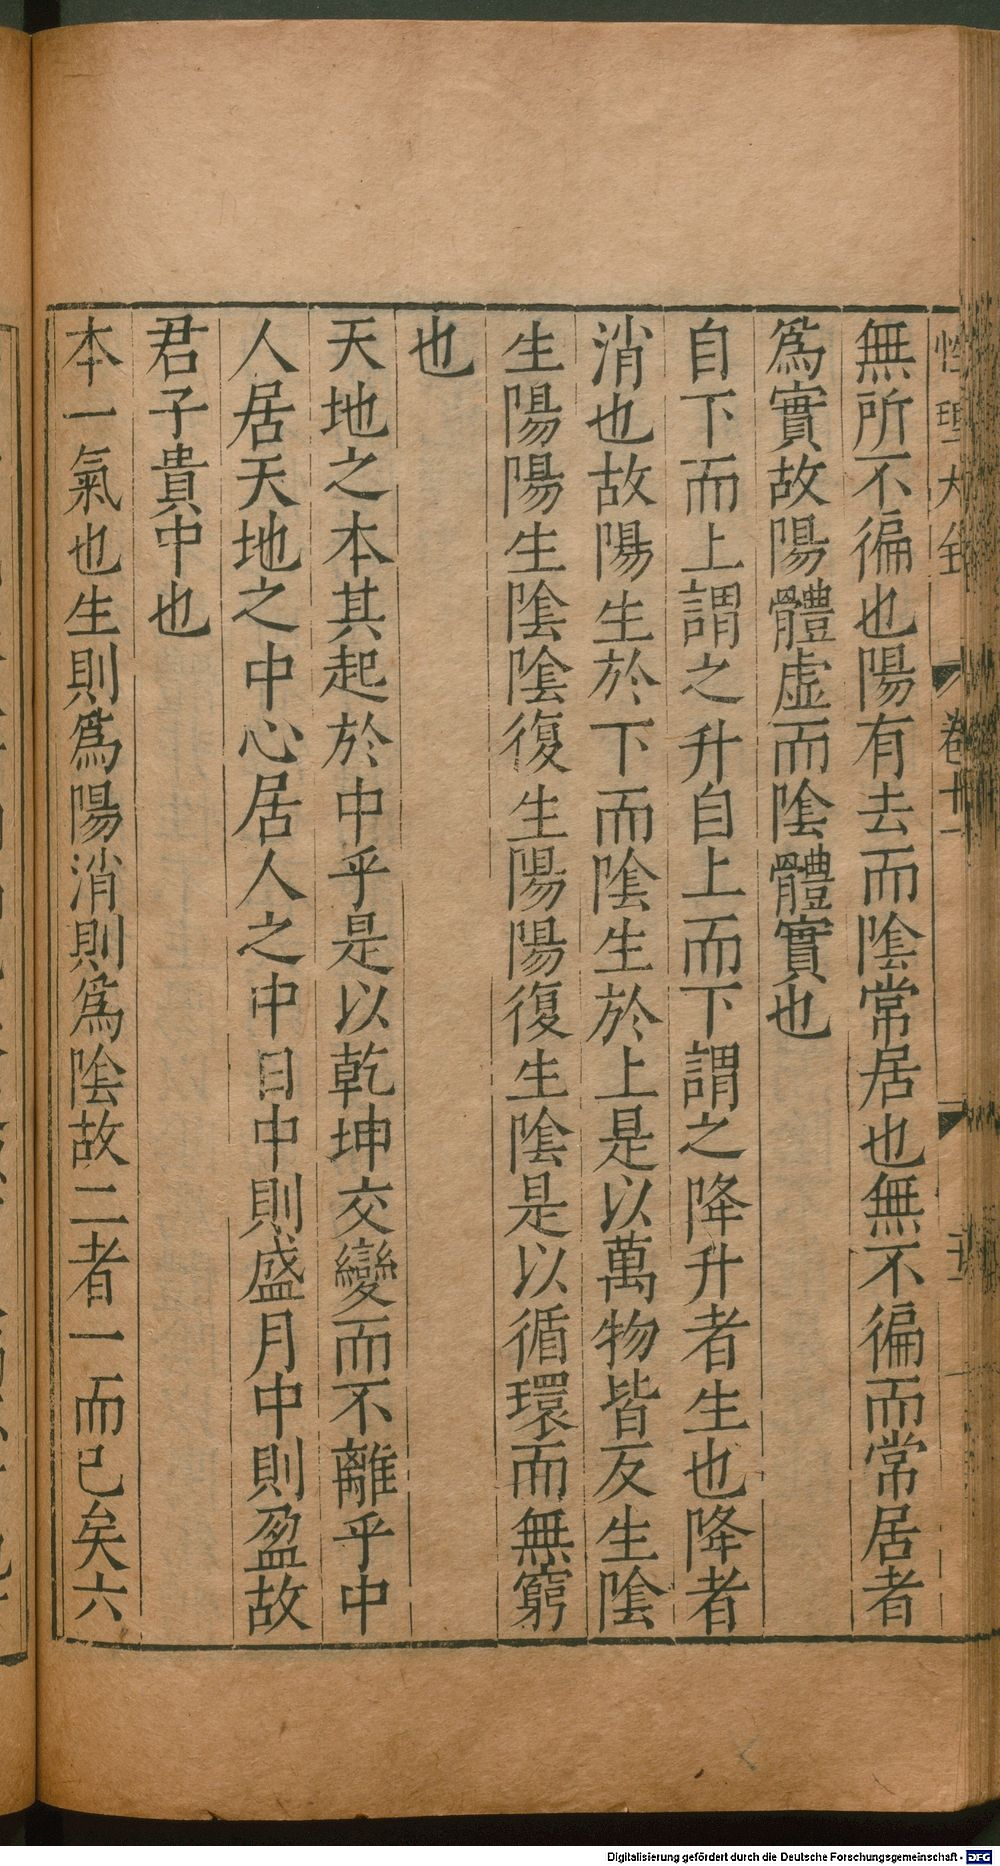 性理大全 卷十一
無所不徧也陽有去而陰常居也無不徧而常居者
爲實故陽體虛而陰體實也
自下而上謂之升自上而下謂之降升者生也降者
消也故陽生於下而陰生於上是以萬物皆反生陰
生陽陽生陰陰復生陽陽復生陰是以循環而無窮
也
天地之本其起於中乎是以乾坤交變而不離乎中
人居天地之中心居人之中日中則盛月中則盈故
君子貴中也
本一氣也生則爲陽消則爲陰故二者一而已矣六
Digitalisierung gefördert durch die Deutsche Forschungsgemeinschaft - DFG